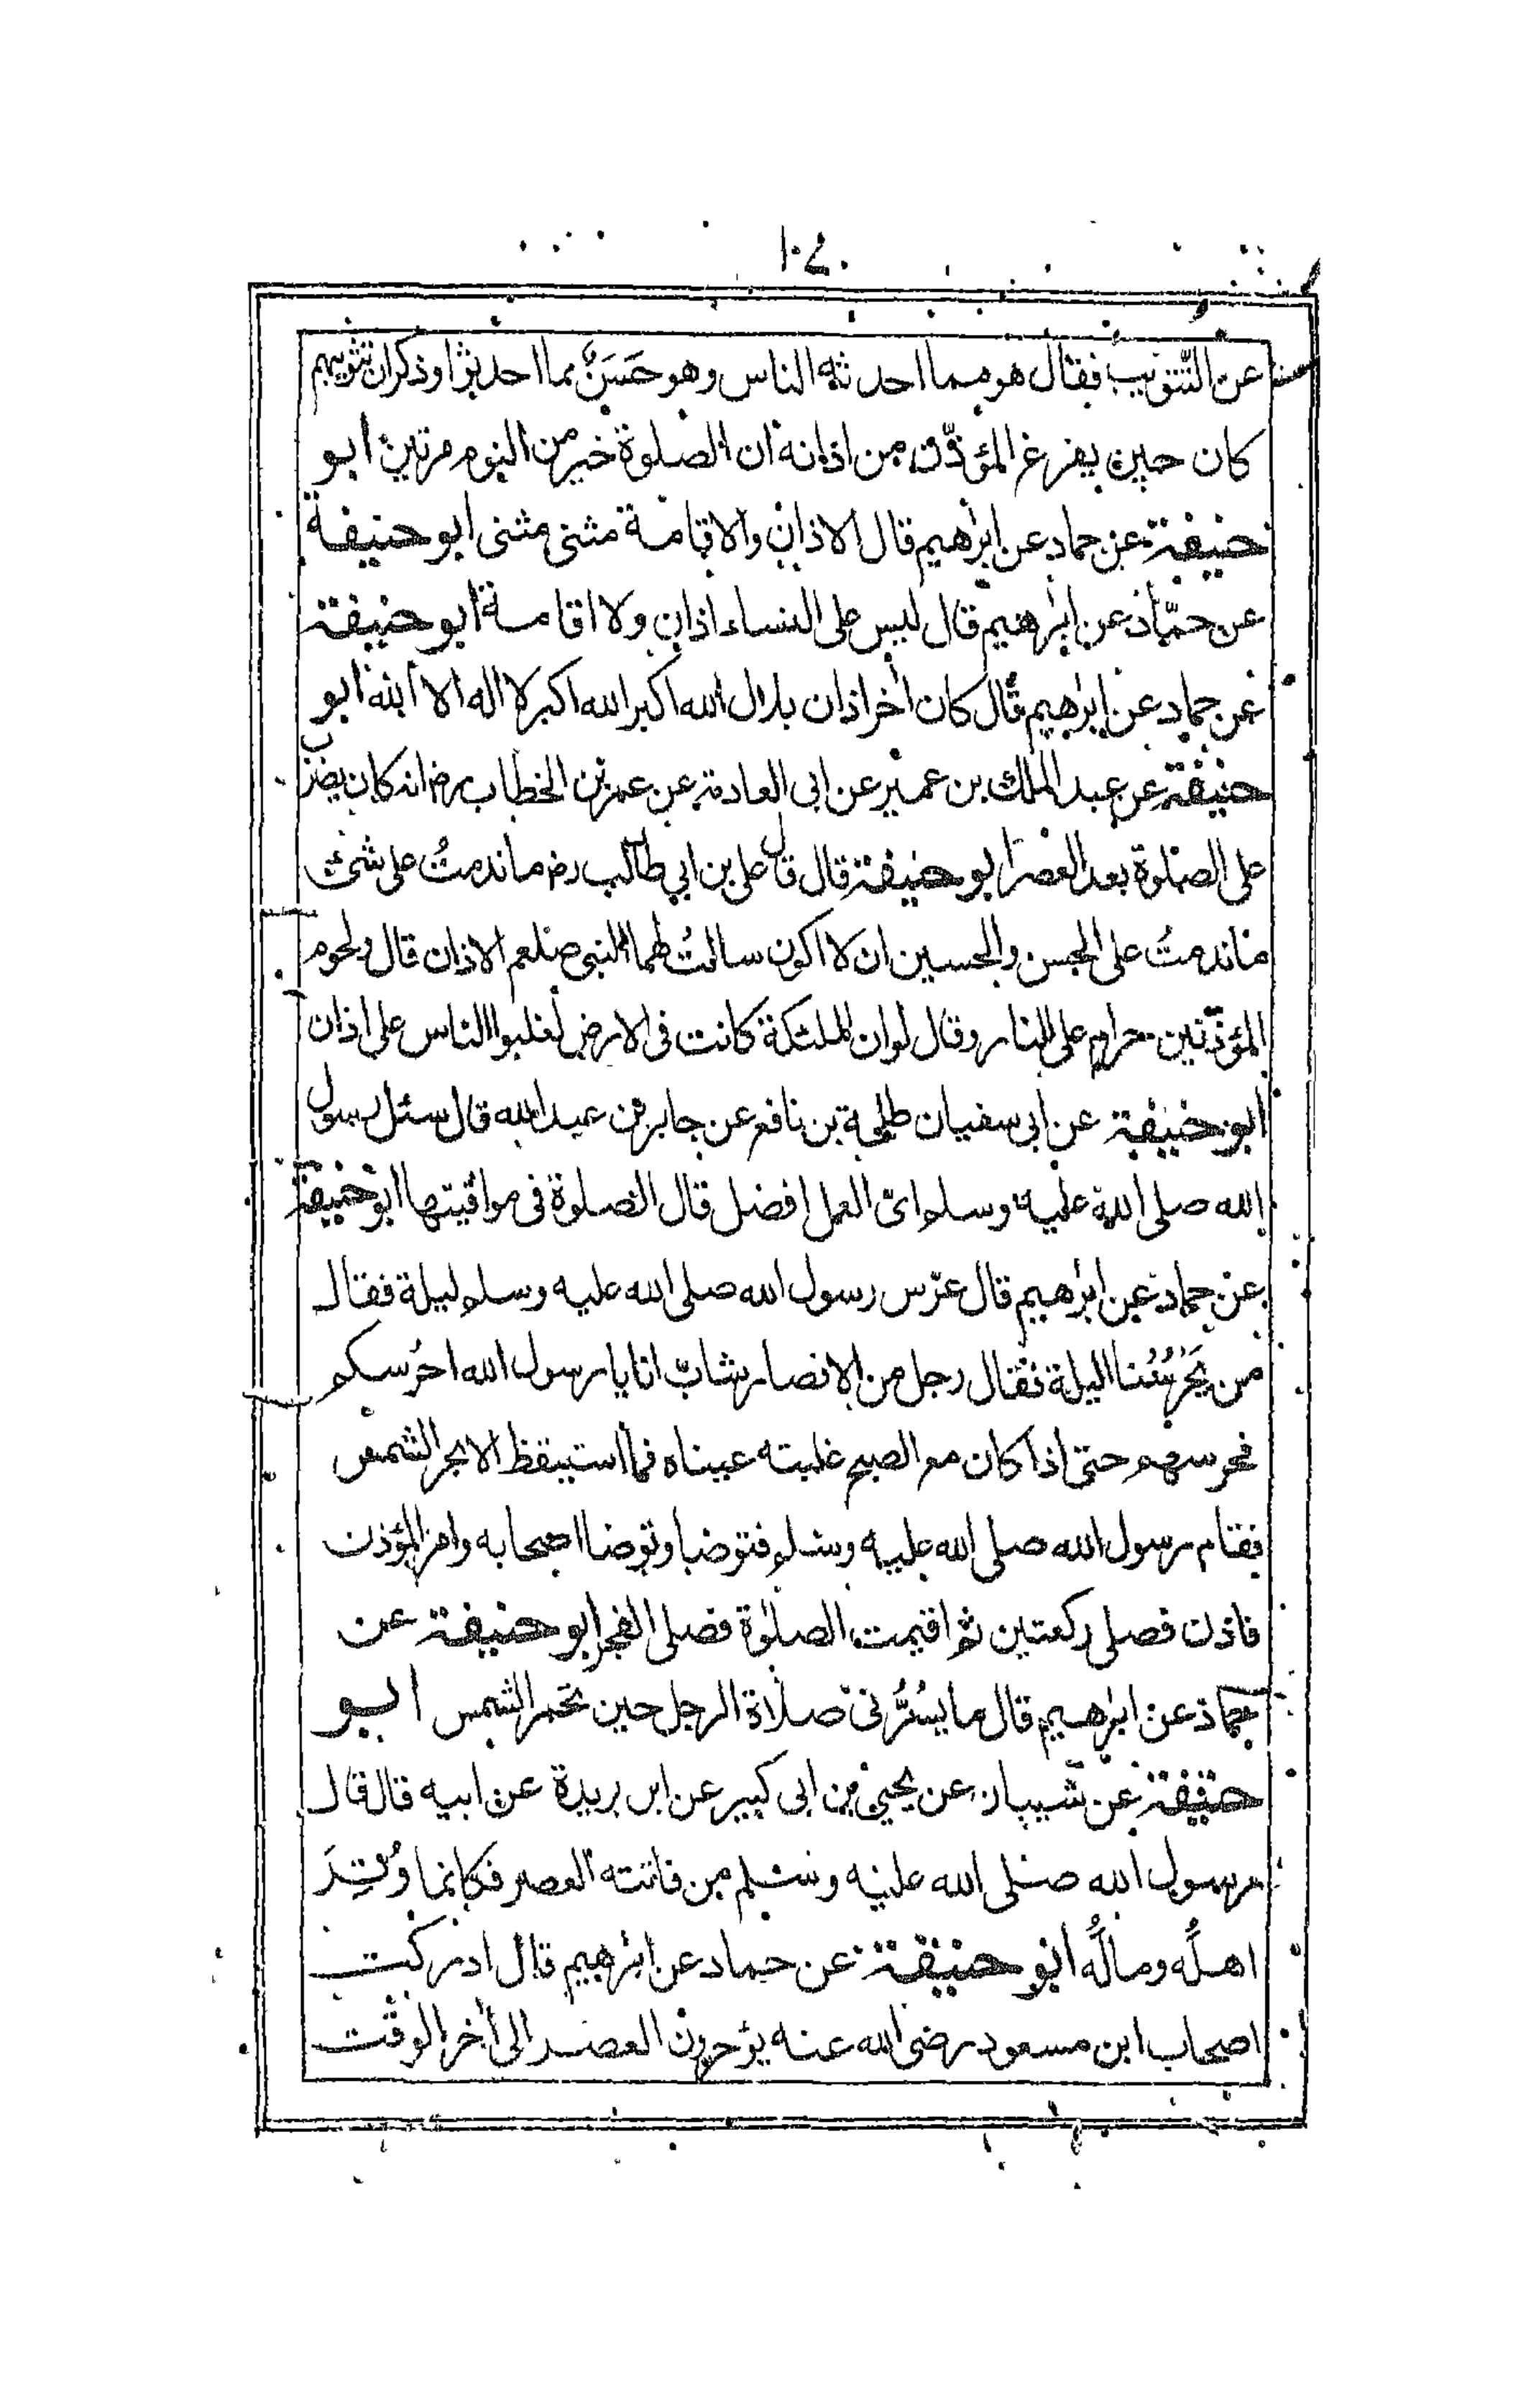 ١٠٤
عن التَّثويب فقال هو مما احدثه الناس وهو حَسَنٌ مما احدثوا وذكر ان تثويبهم
كان حين يفرغ المؤذّن من اذانه ان الصلوة خير من النوم مرتين ابو
حنيفة عن حماد عن ابرٰهيم قال الاذان والاقامة مثنى مثنى ابو حنيفة
عن حمّاد عن ابرٰهيم قال ليس على النساء اذان ولا اقامة ابو حنيفة
عن حماد عن ابرٰهيم قال كان اٰخر اذان بلال الله اكبر الله اكبر لا اله الا الله ابو
حنيفة عن عبد الملك بن عمير عن ابى العادية عن عمر بن الخطاب رض انه كان يضرب
على الصلوة بعد العصر ابو حنيفة قال قال على بن ابي طالب رض ما ندمتُ على شئ
ما ندمتُ على الحسن والحسين ان لا اكون سالتُ لهما النبى صلعم الاذان قال ولحوم
المؤذّنين حرام على النار وقال لو ان الملئكة كانت فى الارض لغلبوا الناس على اذان
ابو حنيفة عن ابى سفيان طلحة بن نافع عن جابر بن عبد الله قال سئل رسول
الله صلى الله عليه وسلم اىّ العمل افضل قال الصلوة فى مواقيتها ابو حنيفة
عن حماد عن ابرٰهيم قال عرّس رسول الله صلى الله عليه وسلم ليلة فقال
من يَحْرُسُنا الليلة فقال رجل من الانصار شابّ انا يا رسول الله احرُسكم
فحرسهم حتى اذا كان مع الصبح غلبته عيناه فما استيقظ الا بحر الشمس
فقام رسول الله صلى الله عليه وسلم فتوضا وتوضا اصحابه وامر المؤذن
فاذن فصلى ركعتين ثم اقيمت الصلوٰة فصلى الفجر ابو حنيفة عن
حماد عن ابرٰهيم قال ما يسُرُّنى صلاة الرجل حين تحمر الشمس ابو
حنيفة عن شيبان عن يحيىٰ بن ابى كبير عن ابن بريدة عن ابيه قال قال
رسول الله صلى الله عليه وسلم من فاتته العصر فكانما وُتِرَ
اهلُه ومالُه ابو حنيفة عن حماد عن ابرٰهيم قال ادركت
اصحاب ابن مسعود رضى الله عنه يؤخرون العصر الى اٰخر الوقت